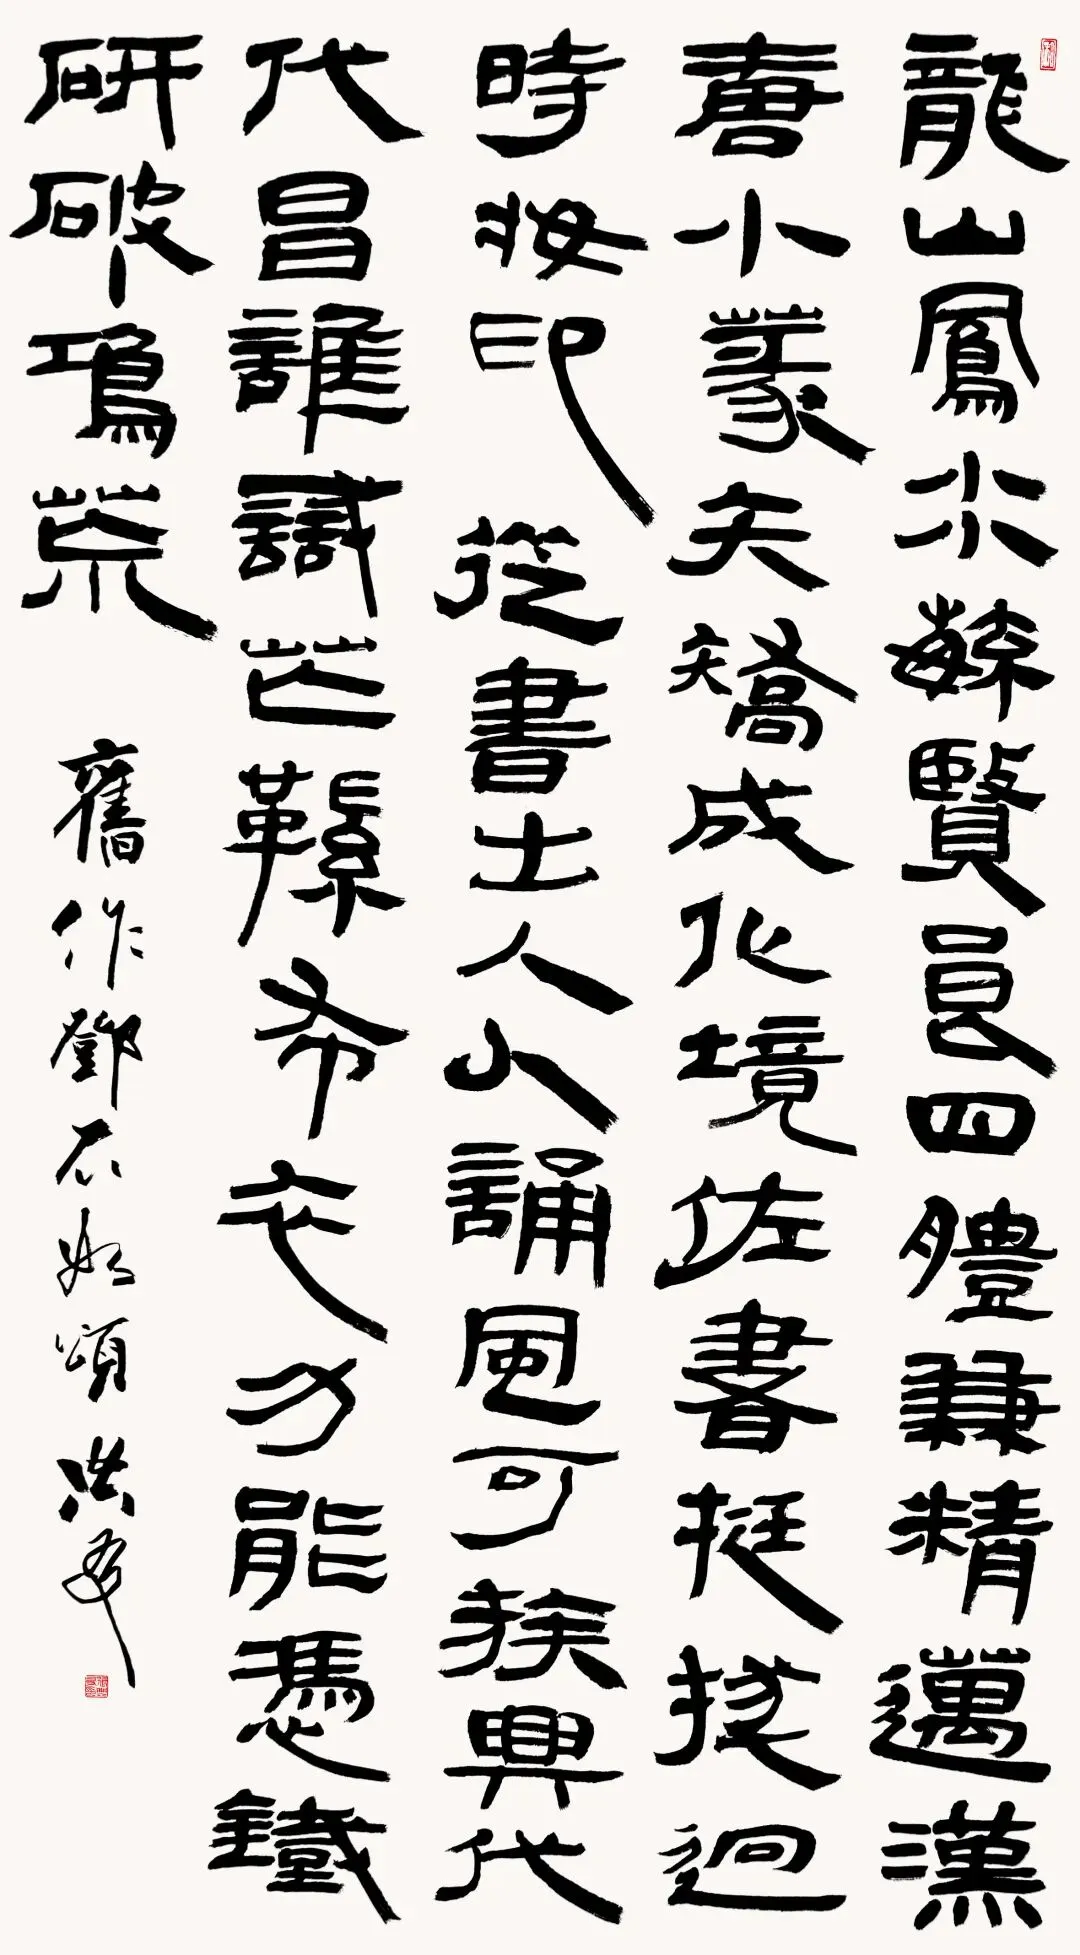 龍山鳳水毓賢良四體兼精邁漢
唐小篆夭矯成化境佐書挺拔迥
時妝印從書出人人誦風可族興代
代昌誰識芒鞵布衣力能憑鐵
研破鴻荒
舊作鄧石如頌 洪